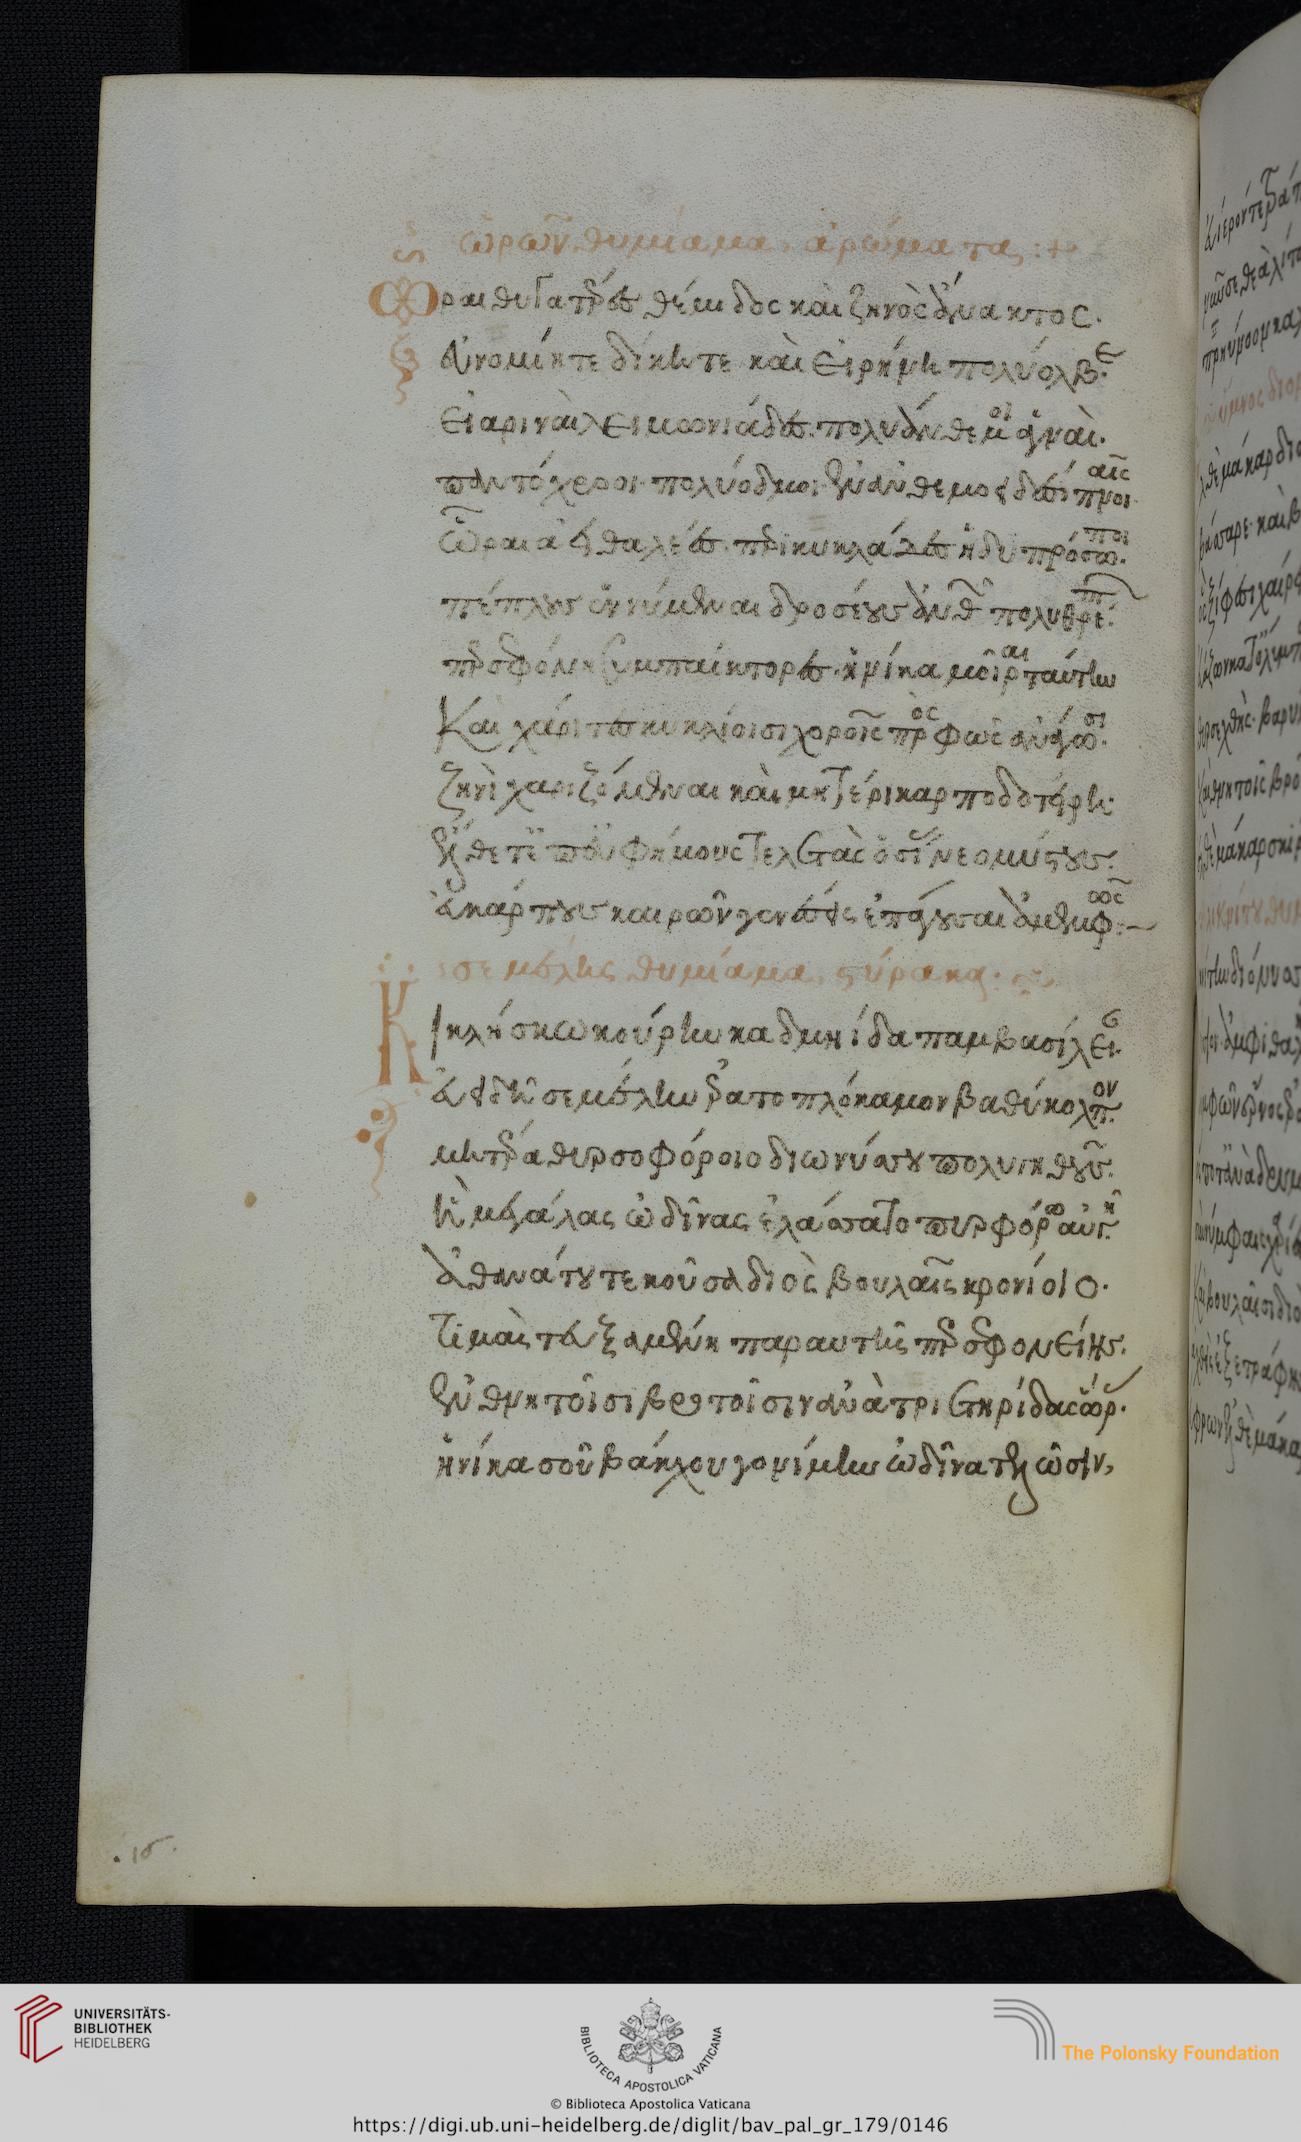 ὡρῶν. θυμίαμα. ἀρώματα :+
Ὧραι θυγατέρες θέμιδος καὶ ζηνὸς ἄνακτος.
εὐνομίη τε δίκη τε καὶ εἰρήνη πολύολβε.
εἰαριναὶ λειμωνιάδες. πολυάνθεμοι ἁγναὶ.
παντόχροοι. πολύοδμοι. ἐν ἀνθεμοειδέσι πνοιαῖς.
ὧραι ἀειθαλέες. περικυκλάδες ἡδυπρόσωποι.
πέπλους ἑννύμεναι δροσεροὺς ἀνθῶν πολυθρέπτων.
περσεφόνη συμπαίκτορες. ἡνίκα μοῖραι ταύτην
καὶ χάριτες κυκλίοισι χοροῖς πρὸς φῶς ἀνάγωσι.
ζηνὶ χαριζόμεναι καὶ μητέρι καρποδοτείρῃ.
ἔλθετ' ἐπ' εὐφήμους τελετὰς ὁσίας νεομύστους.
εὐκάρπους καιρῶν γενέσεις ἐπάγουσαι ἀμεμφῶς:~
σεμέλης θυμίαμα, στύρακα.
Κικλήσκω κούρην καδμηίδα παμβασίλειαν.
εὐειδῆ σεμέλην ἐρατοπλόκαμον βαθύκολπον.
μητέρα θυρσοφόροιο διωνύσου πολυγηθοῦς.
ἣ μεγάλας ὠδῖνας ἐλάσσατο πυρφόρῳ αὐγῆ.
ἀθανάτου τεκοῦσα διὸς βουλαῖς κρονίοιο.
τιμὰς τευξαμένη παρ αυτῆς περσεφονείης.
ἐν θνητοῖσι βροτοῖσιν ἀνὰ τριετηρίδας ὥρας.
ἡνίκα σοῦ βάκχου γονίμην ὠδῖνα τελῶσιν,
.15.
UNIVERSITÄTS-
BIBLIOTHEK
HEIDELBERG
BIBLIOTECA APOSTOLICA VATICANA
The Polonsky Foundation
© Biblioteca Apostolica Vaticana
https://digi.ub.uni-heidelberg.de/diglit/bav_pal_gr_179/0146